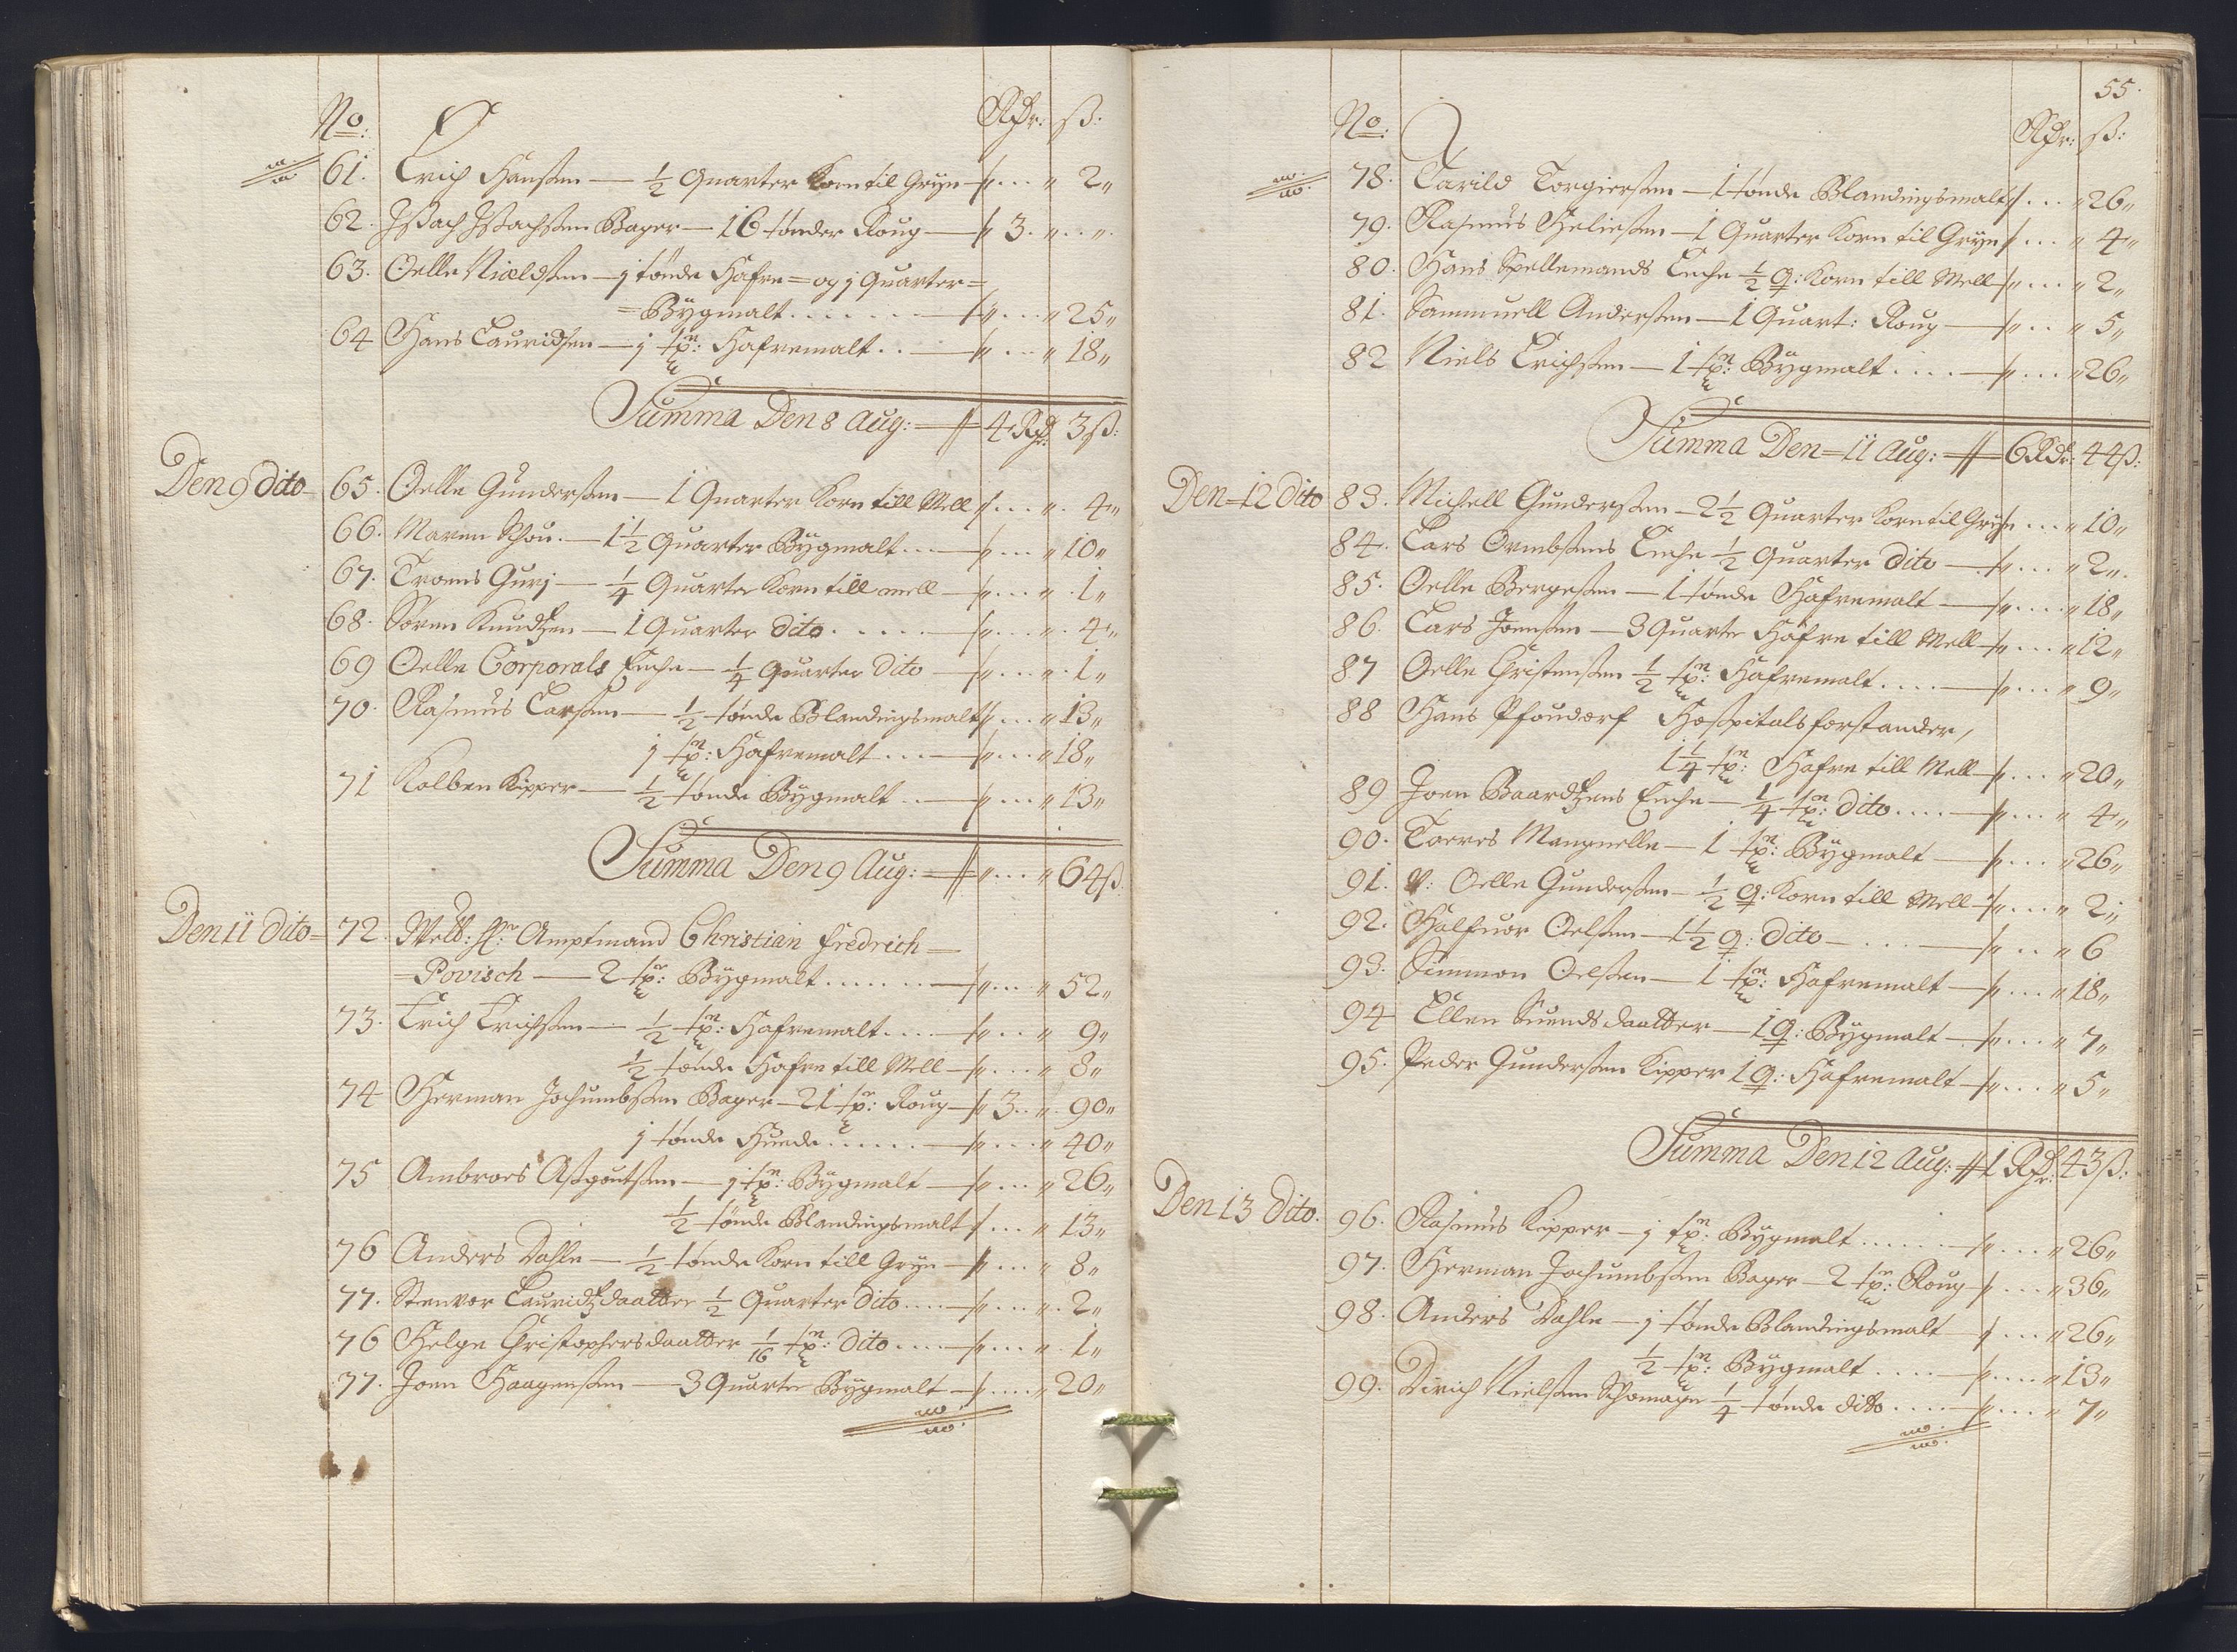 No: Rdr: ß:
61. Erich Hanßen — ½ Quarter Korn til Gryn — „ ... „ 2„
62. Ißach Ißachßen Bager — 16 tønder Roug — „ 3. „ .. „
63. Oelle Nieldßen — j tønde Hafre = og j Quarter =
= Bÿgmalt ....... — „ ... „ 25„
64 Hans Lauridsen — j tn: Hafremalt .. — „ ... „ 18„
Summa Den 8 Aug: — 4 Rdr 3 ß:
Den 9 Dito 65. Oelle Gunderßen — 1 Quarter Korn till Mell „ ... „ 4„
66. Maren Schou — 1½ Quarter Bÿgmalt ... — „ ... „ 10„
67. Troens Gurj — ¼ Quarter Korn till mell — „ ... „ 1„
68. Søren Knudtzen — 1 Quarter Dito ..... — „ ... „ 4„
69 Oelle Corporals Enche — ¼ Quarter Dito — „ ... „ 1„
70. Rasmus Larßen — ½ tønde Blandingsmalt „ ... „ 13„
j tn: Hafremalt ... — „ ... „ 18„
71 Kolben Kipper — ½ tønde Bÿgmalt .. — „ ... „ 13„
Summa Den 9 Aug: — „ ... „ 64 ß
Den 11 Dito = 72. Welb: Hr: Ampfmand Christian Fredrich —
= Povisch — 2 tr: Bÿgmalt ....... — „ ... „ 52„
73. Erich Erichßen — ½ tn: Hafremalt .... — „ ... „ 9„
½ tønde Hafre till Mell — „ ... „ 8„
74 Herman Jochumbßen Bager — 21 tr: Roug — „ 3 .. „ 90„
j tønde Huede ...... — „ ... „ 40„
75 Ambroes Aßgoutßen — j tn: Bÿgmalt — „ ... „ 26„
½ tønde Blandingsmalt „ ... „ 13„
76 Anders Dahle — ½ tønde Korn till Gryn — „ ... „ 8„
77. Stenvor Lauridtzdaatter ½ Quarter Dito .... — „ ... „ 2„
76 Helge Christophersdaatter 1/16 tn: Dito .... — „ ... „ 1„
77. Joen Haagenßen — 3 Quarter Bÿgmalt — „ .... „ 20„
55.
No: Rdr: ß:
78. Tarild Torgierßen — 1 tønde Blandingsmalt „ ... „ 26„
79. Rasmus Heließen — 1 Quarter Korn til Gryn „ ... „ 4„
80. Hans Spellemands Enche ½ q: Korn till Mell — „ ... „ 2„
81. Sammuell Anderßen — 1 Quart: Roug — „ .. „ 5„
82 Niels Erichßen — 1 tn: Bÿgmalt .... — „ ... „ 26„
Summa Den = 11 Aug: — 6 Rdr: 44 ß:
Den = 12 Dito 83. Michell Gunderßen — 2½ Quarter Korn til Gryn ... „ 10„
84. Lars Ormbßens Enche ½ Quarter Dito — „ ... „ 2„
85. Oelle Bergeßen — 1 tønde Hafremalt — „ .... „ 18„
86. Lars Joenßen — 3 Quarter Hafre till Mell — „ ... „ 12„
87 Oelle Christenßen ½ tn: Hafremalt .... — „ ... „ 9„
88 Hans Pfoudorf Hospitalsforstander,
1¼ tn: Hafre till Mell — „ ... „ 20„
89 Joen Baardtzens Enche — ¼ tn: Dito .... — „ ... „ 4„
90. Torres Mangnelle — 1 tn: Bÿgmalt — „ ... „ 26„
91. V: Oelle Gunderßen — ½ q: Korn till Mell — „ ... „ 2„
92. Halfuor Oelßen — 1½ q: Dito — ... — „ .. „ 6
93. Simmon Oelßen — 1 tn: Hafremalt — „ ... „ 18„
94 Ellen Suendsdaatter — 1 q: Bÿgmalt — „ ... „ 7„
95. Peder Gunderßen Kipper 1 q: Hafremalt — „ ... „ 5„
Summa Den 12 Aug: 1 Rdr: 43 ß:
Den 13 Dito. 96. Rasmus Kipper — j tn: Bÿgmalt ...... — „ ... „ 26„
97. Herman Jochumbßen Bager — 2 tr: Roug — „ ... „ 36„
98. Anders Dahle — j tønde Blandingsmalt — „ ... „ 26„
½ tn: Bÿgmalt .... — „ .... „ 13„
99. Dirich Nielßen Schomager ¼ tønde dito .... — „ ... „ 7„